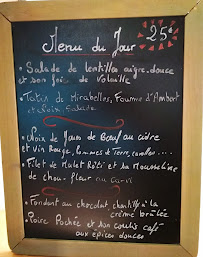 Menu du Jour 25€
• Salade de lentilles aigre-douce
et son foie de Volaille
• Tatin de Mirabelles, Fourme d'Ambert
et Noix Salade
• Noix de Joues de Boeuf au cidre
et Vin Rouge, Pommes de Terre, carottes ...
• Filet de Mulet Rôti et sa Mousseline
de chou-fleur au carvi
• Fondant au chocolat, chantilly à la
crème brûlée
• Poire Pochée et son coulis café
aux épices douces